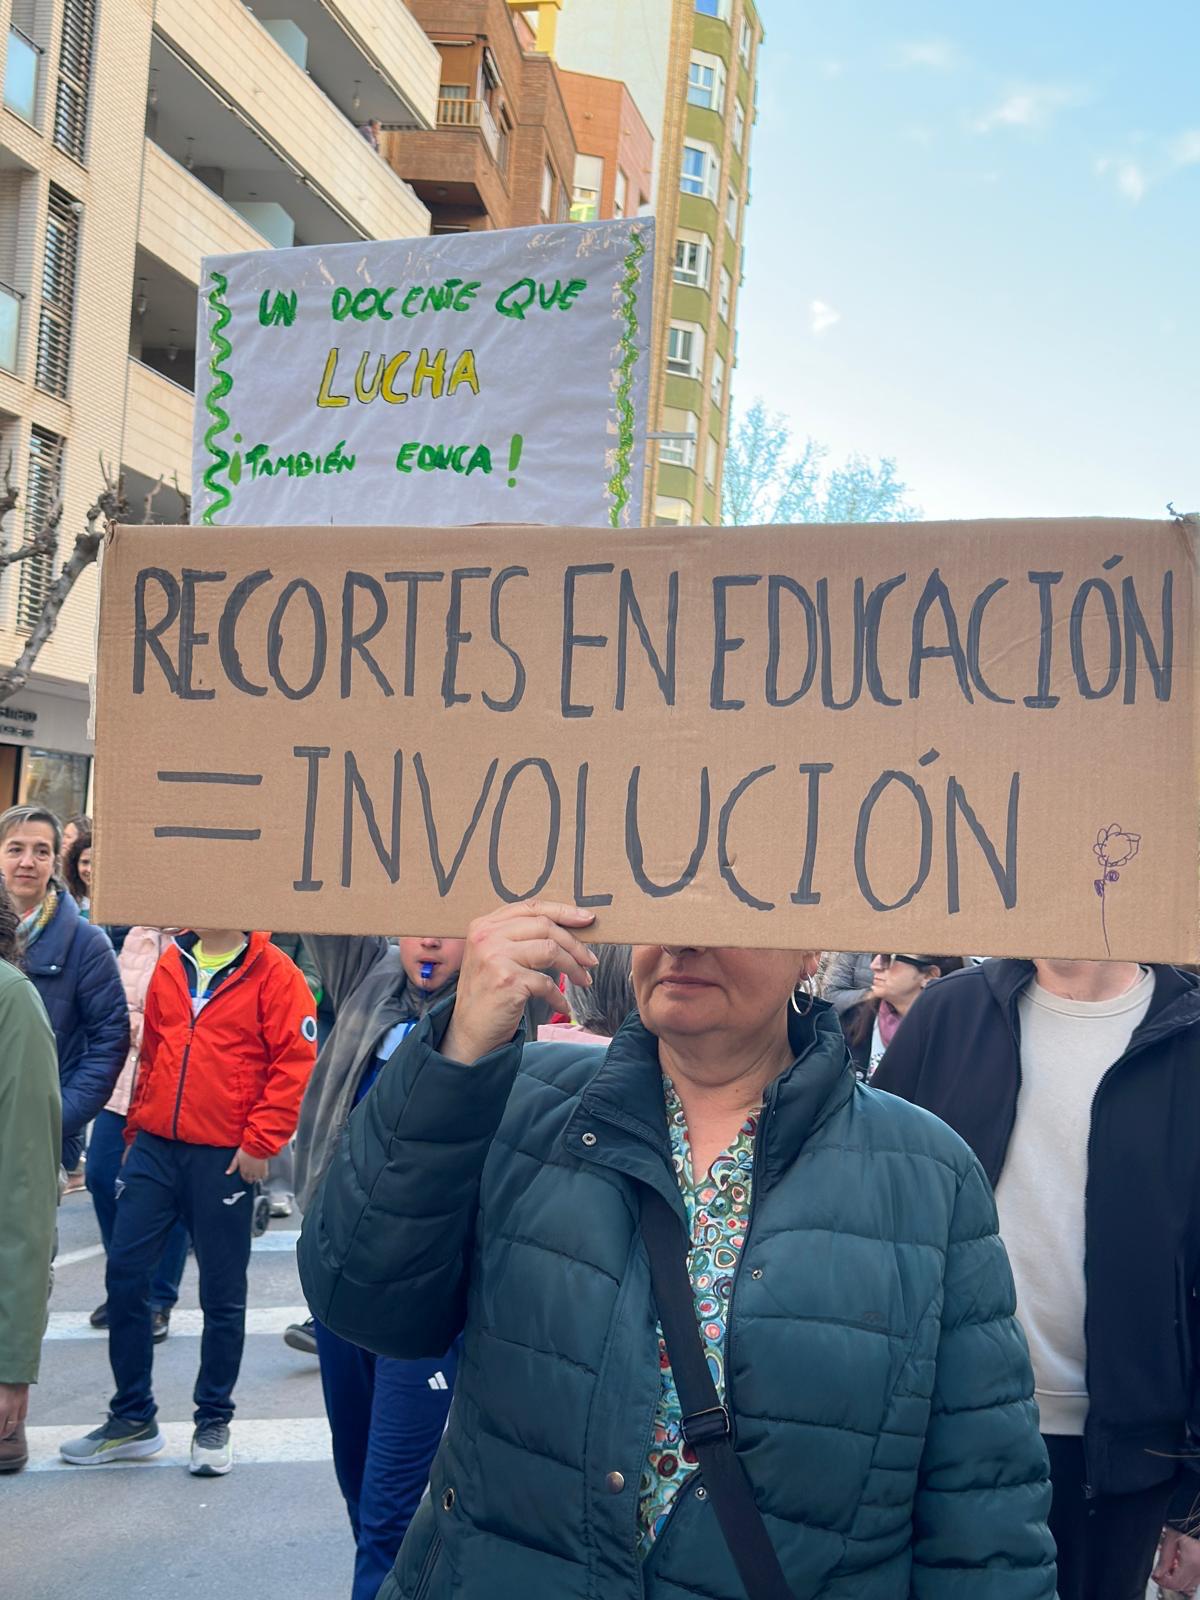 UN DOCENTE QUE
LUCHA
¡TAMBIÉN EDUCA!
RECORTES EN EDUCACIÓN
= INVOLUCIÓN